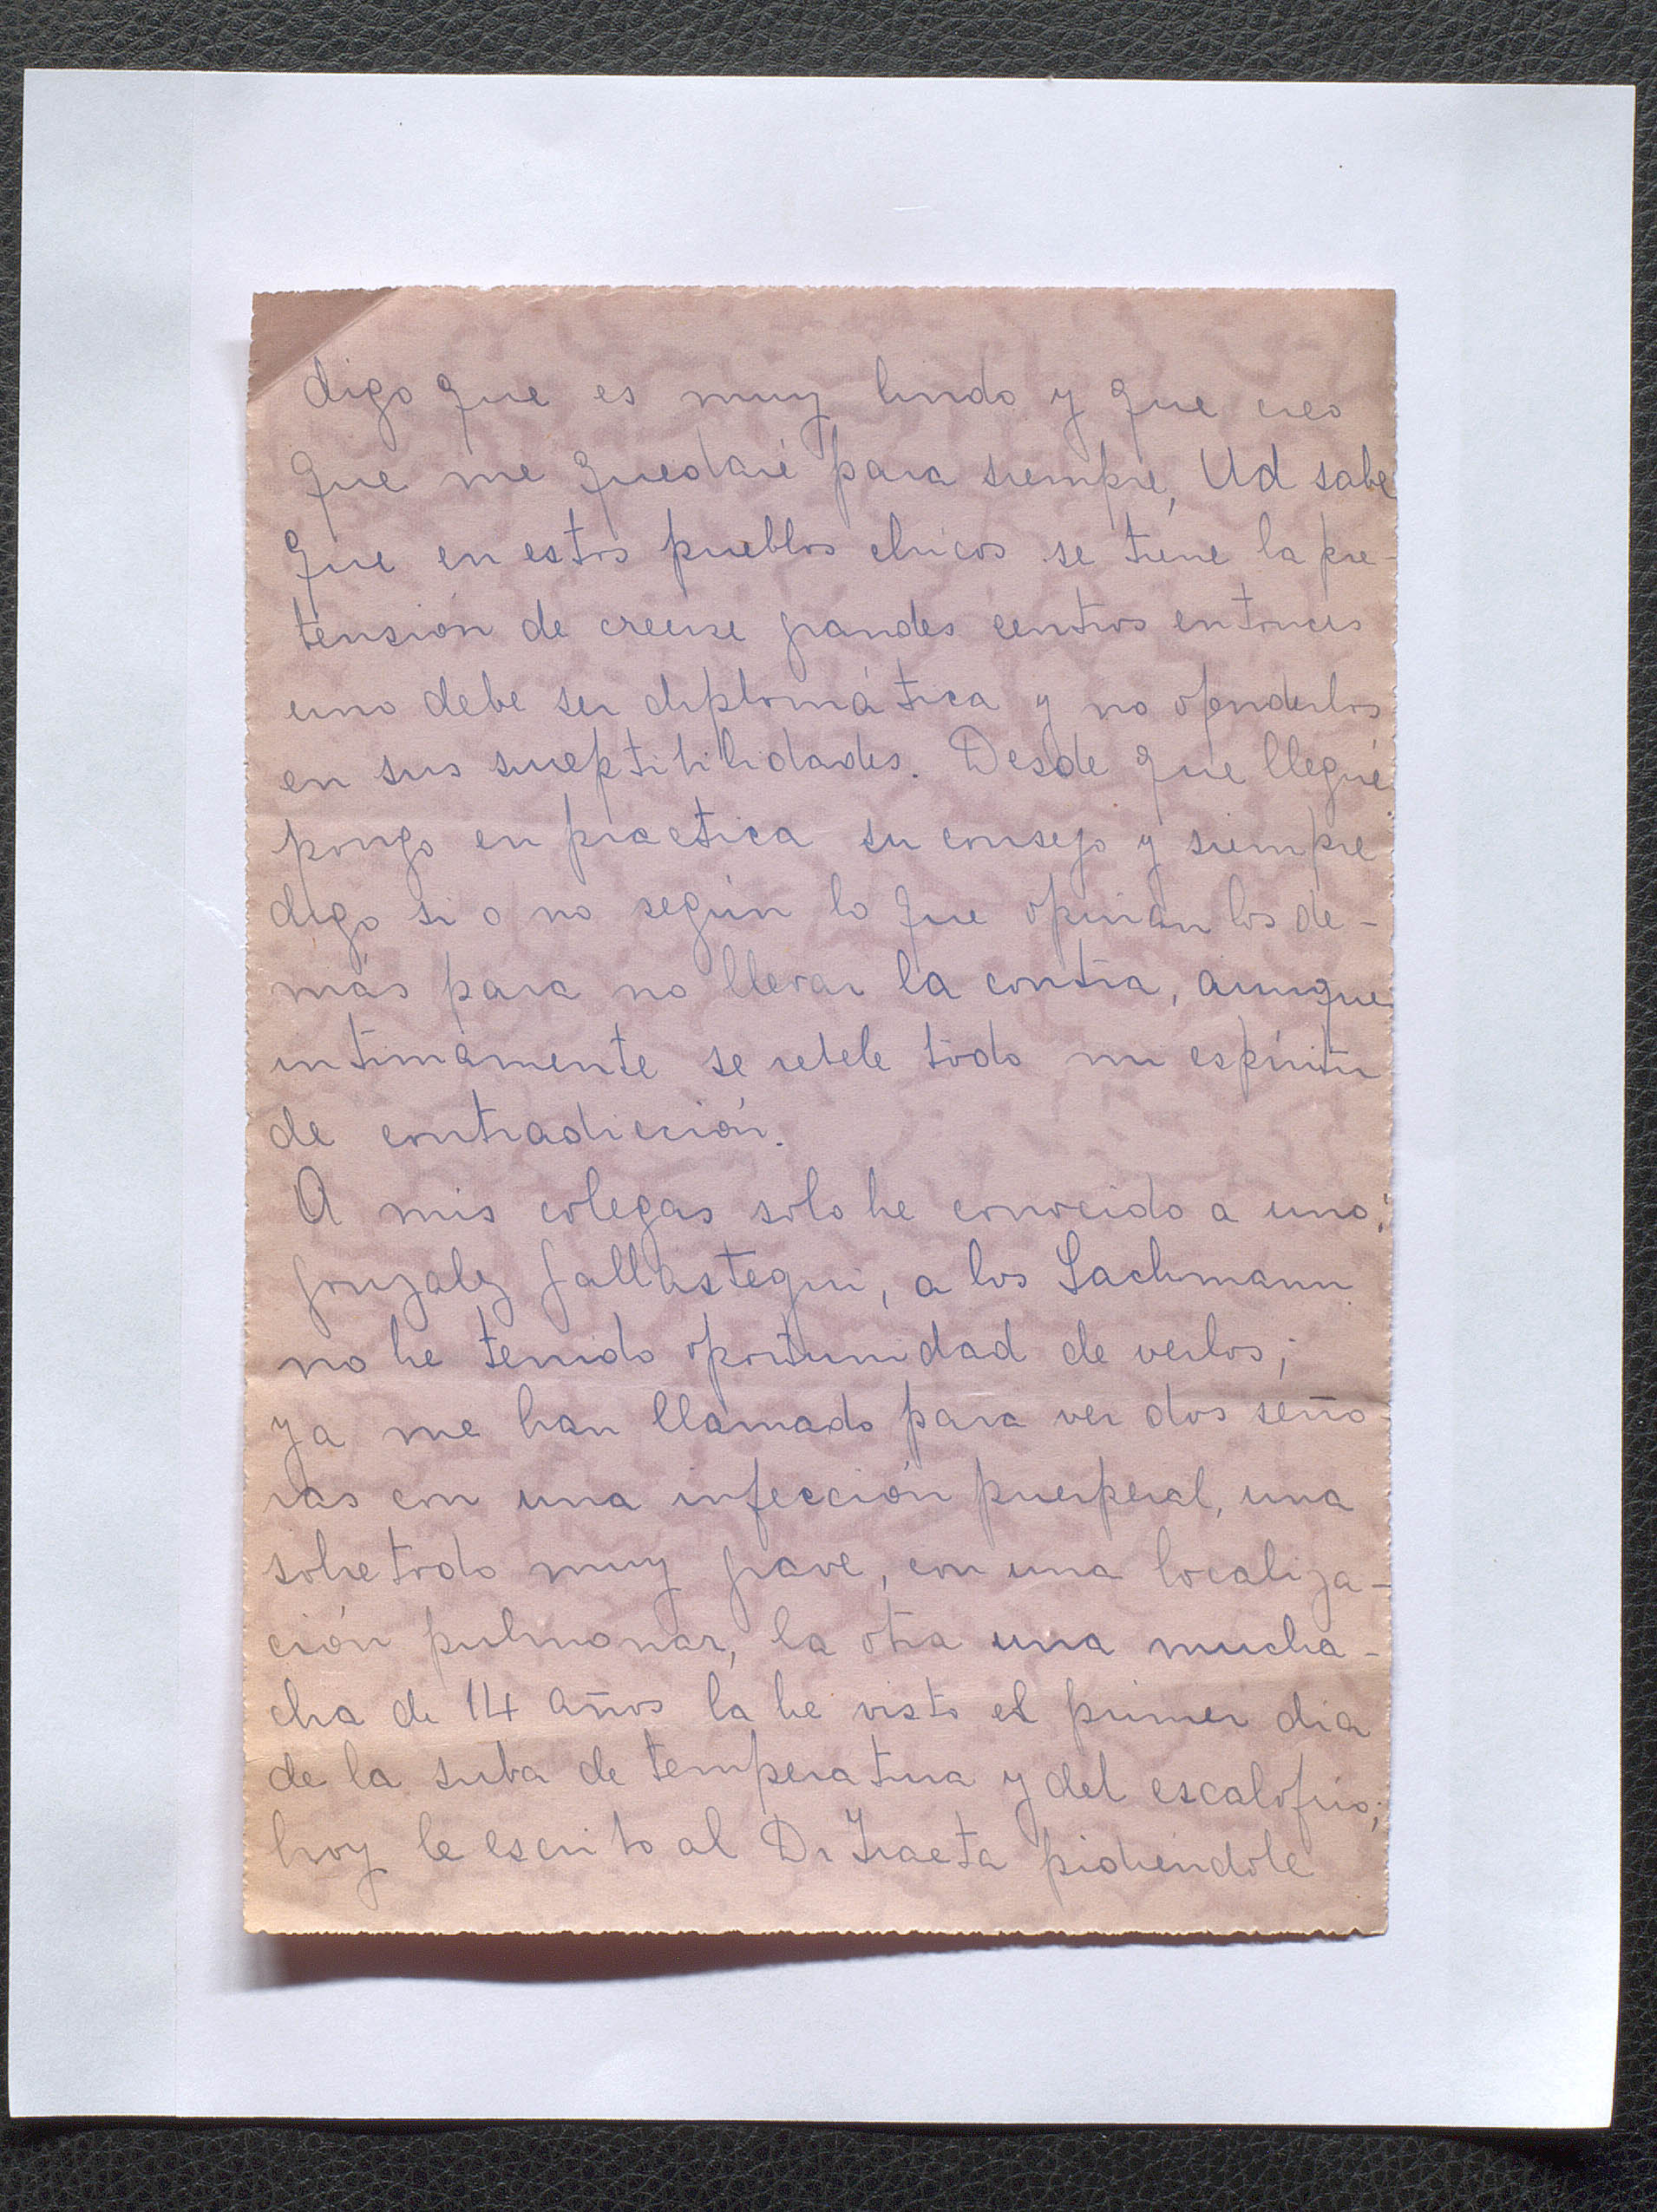 digo que es muy lindo y que creo
que me quedaré para siempre, Ud sabe
que en estos pueblos chicos se tiene la pre-
tensión de creerse grandes centros entonces
uno debe ser diplomática y no ofenderlos
en sus suceptibilidades. Desde que llegué
pongo en práctica su consejo y siempre
digo si o no según lo que opinan los de-
más para no llevar la contra, aunque
intimamente se rebele todo mi espíritu
de contradicción.
A mis colegas solo he conocido a uno:
Gonzalez Gallastegui, a los Lachmann
no he tenido oportunidad de verlos;
ya me han llamado para ver dos seño
ras con una infección puerperal, una
sobre todo muy grave, con una localiza-
ción pulmonar, la otra una mucha-
cha de 14 años la he visto el primer dia
de la suba de temperatura y del escalofrio;
hoy le escrito al Dr Traeta pidiéndole